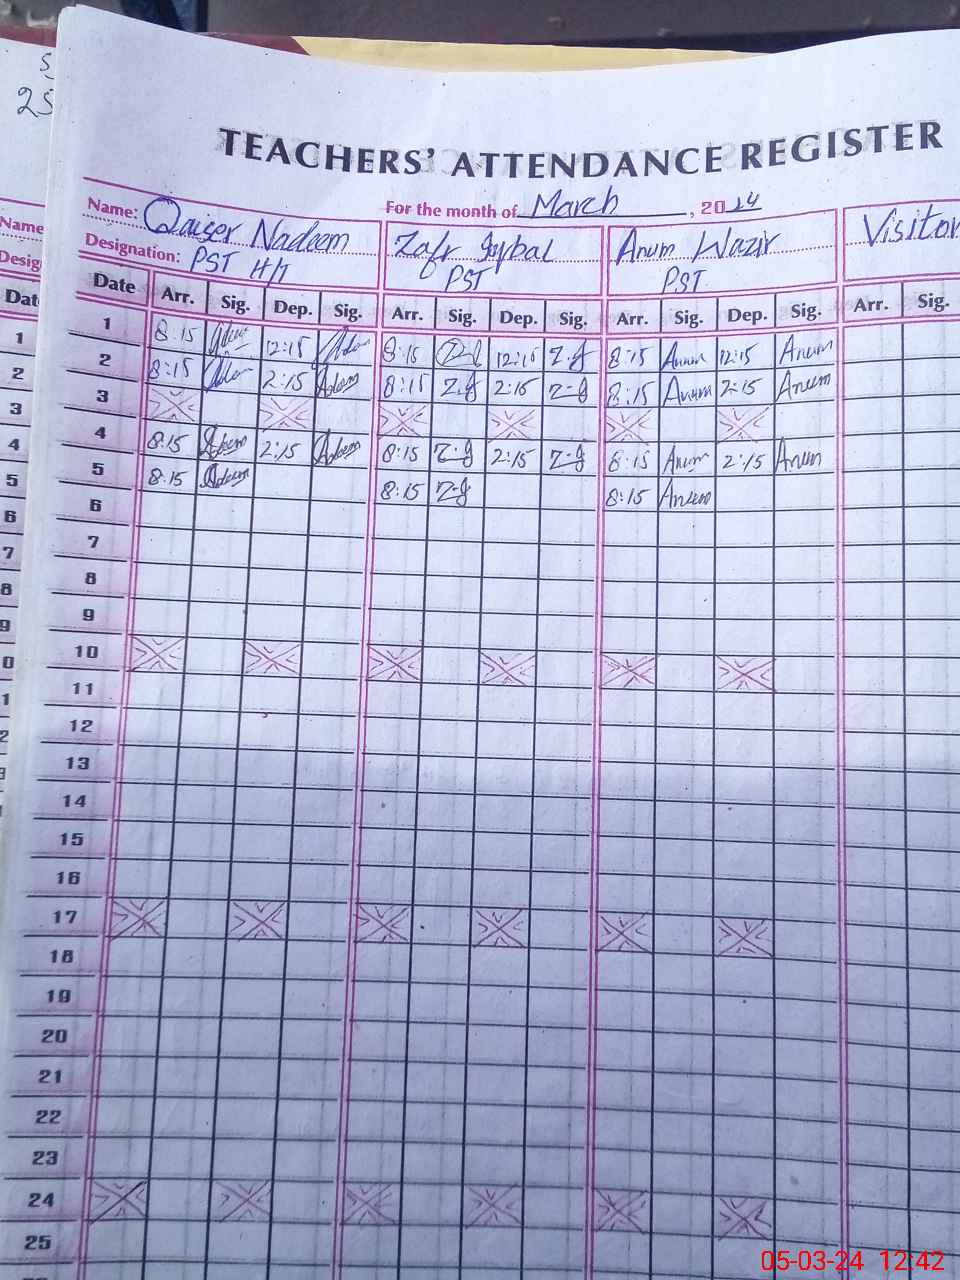 S
25
TEACHERS' ATTENDANCE REGISTER
For the month of March, 2024
Name: Qaiser Nadeem Zafr Iqbal Anum Wazir Visitor
Designation: PST H/T PST PST
Date Arr. Sig. Dep. Sig. Arr. Sig. Dep. Sig. Arr. Sig. Dep. Sig. Arr. Sig.
1 8:15 12:15 8:15 12:15 Z.J 8:15 Anum 12:15 Anum
2 8:15 2:15 Adeem 8:15 Z.J 2:15 Z-J 8:15 Anum 2:15 Anum
3
4 8:15 Adeem 2:15 Adeem 8:15 Z-J 2:15 Z-J 8:15 Anum 2:15 Anum
5 8:15 Adeem 8:15 Z-J 8:15 Anum
6
7
8
9
10
11
12
13
14
15
16
17
18
19
20
21
22
23
24
25
Name
Desig
Dat
1
2
3
4
5
6
7
8
9
0
1
2
05-03-24 12:42